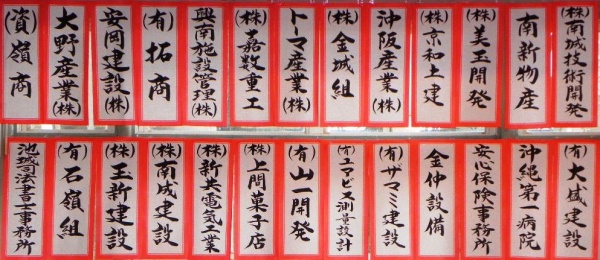 (株)南城技術開発
南新物産
(株)美玉開発
(株)京和土建
沖阪産業(株)
(株)金城組
トーマ産業(株)
(株)嘉数重工
興南施設管理(株)
(有)拓商
安岡建設(株)
大野産業(株)
(資)嶺商
(有)大盛建設
沖縄第一病院
安心保険事務所
金仲設備
(有)ザマミ建設
(有)ユマビス測量設計
(有)山一開発
(株)上間菓子店
(株)新共電気工業
(株)南成建設
(株)玉新建設
(有)石嶺組
池城司法書士事務所